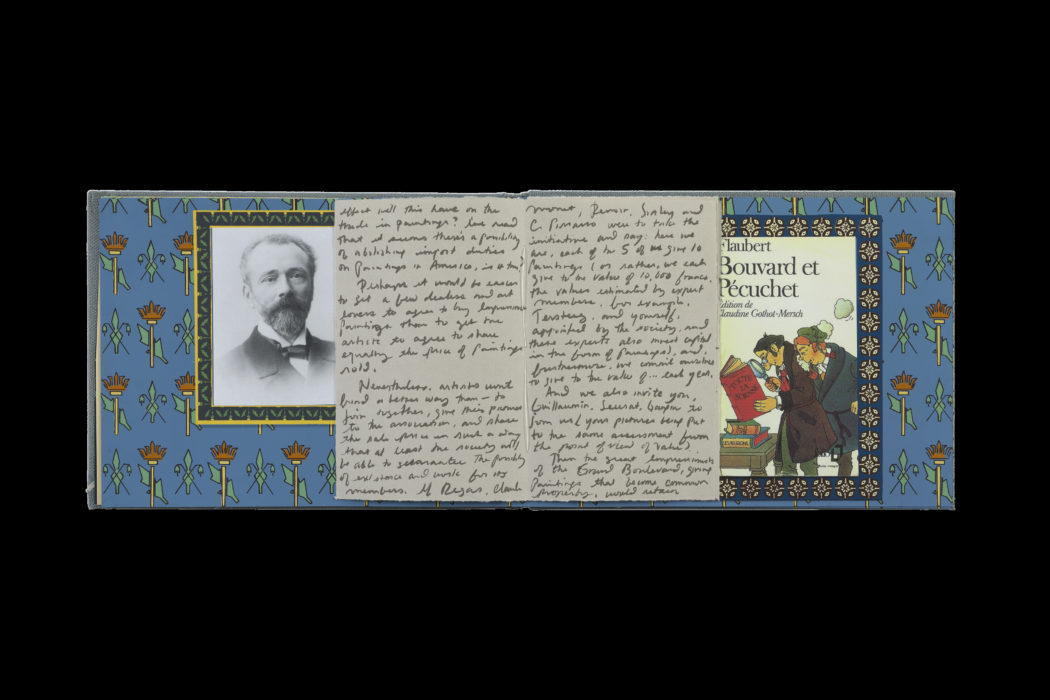 effect will this have on the
trade in paintings? I've read
that it seems there's a possibility
of abolishing import duties
on paintings in America, is it true?
Perhaps it would be easier
to get a few dealers and art
lovers to agree to buy Impressionist
paintings than to get the
artists to agree to share
equally the price of paintings
sold.
Nevertheless, artists won't
find a better way than — to
join together, give their pictures
to the association, and share
the sale price in such a way
that at least the society will
be able to guarantee the possibility
of existence and work for its
members. If Degas, Claude
Monet, Renoir, Sisley and
C. Pissarro were to take the
initiative and say: here we
are, each of the 5 of us give 10
paintings (or rather, we each
give to the value of 10,000 francs,
the values estimated by expert
members, for example,
Tersteeg, and yourself,
appointed by the society, and
these experts also invest capital
in the form of paintings), and,
furthermore, we commit ourselves
to give to the value of ... each year,
And we also invite you,
Guillaumin, Seurat, Gauguin to
join us (your pictures being put
to the same assessment from
the point of view of value).
Then the great Impressionists
of the Grand Boulevard, giving
paintings that become common
property, would retain
Flaubert
Bouvard et
Pécuchet
Édition de
Claudine Gothot-Mersch